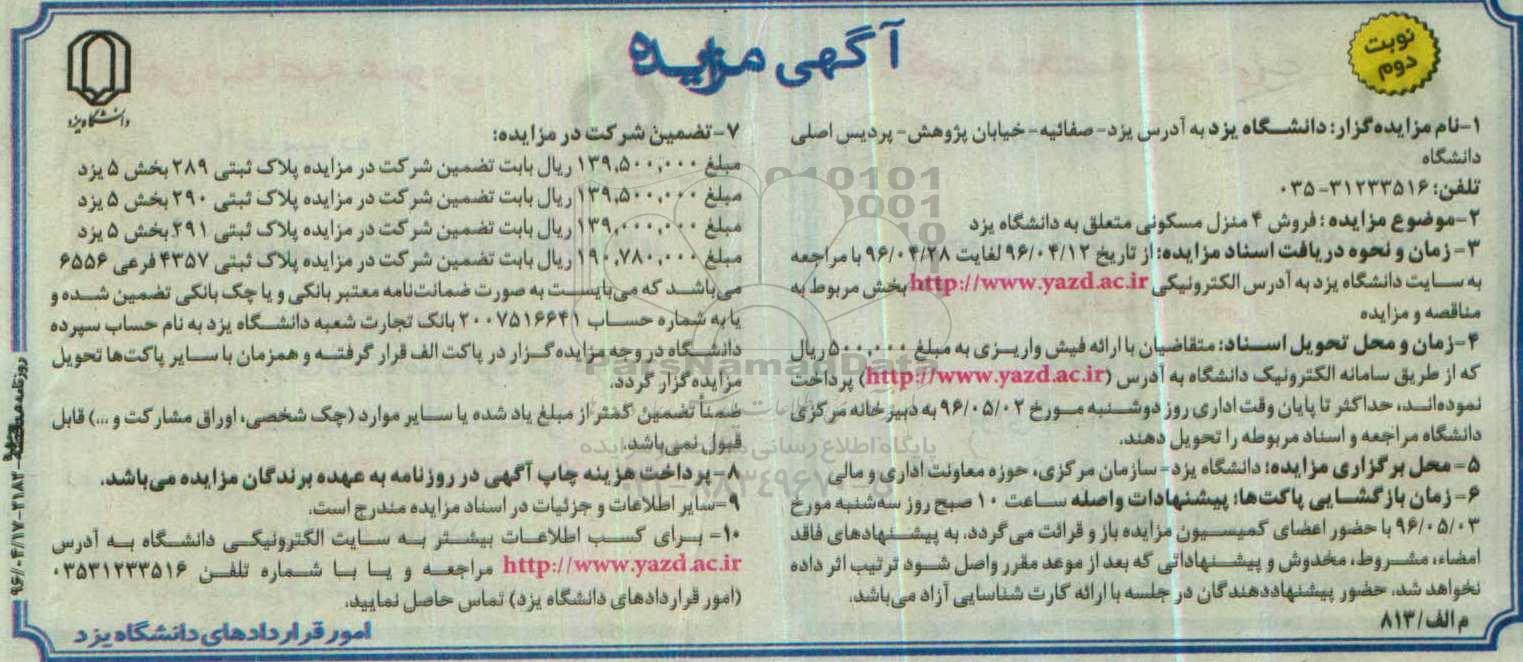 آگهی مزایده
نوبت
دوم
دانشگاه یزد
۱-نام مزایده‌گزار: دانشگاه یزد به آدرس یزد- صفائیه- خیابان پژوهش- پردیس اصلی
دانشگاه
تلفن: ۳۱۲۳۳۵۱۶-۰۳۵
۲-موضوع مزایده: فروش ۴ منزل مسکونی متعلق به دانشگاه یزد
۳- زمان و نحوه دریافت اسناد مزایده: از تاریخ ۹۶/۰۴/۱۲ لغایت ۹۶/۰۴/۲۸ با مراجعه
به سایت دانشگاه یزد به آدرس الکترونیکی http://www.yazd.ac.ir بخش مربوط به
مناقصه و مزایده
۴-زمان و محل تحویل اسناد: متقاضیان با ارائه فیش واریزی به مبلغ ۵۰۰,۰۰۰ ریال
که از طریق سامانه الکترونیک دانشگاه به آدرس (http://www.yazd.ac.ir) پرداخت
نموده‌اند، حداکثر تا پایان وقت اداری روز دوشنبه مورخ ۹۶/۰۵/۰۲ به دبیرخانه مرکزی
دانشگاه مراجعه و اسناد مربوطه را تحویل دهند.
۵- محل برگزاری مزایده: دانشگاه یزد- سازمان مرکزی، حوزه معاونت اداری و مالی
۶- زمان بازگشایی پاکت‌ها: پیشنهادات واصله ساعت ۱۰ صبح روز سه‌شنبه مورخ
۹۶/۰۵/۰۳ با حضور اعضای کمیسیون مزایده باز و قرائت می‌گردد. به پیشنهادهای فاقد
امضاء، مشروط، مخدوش و پیشنهاداتی که بعد از موعد مقرر واصل شود ترتیب اثر داده
نخواهد شد، حضور پیشنهاددهندگان در جلسه با ارائه کارت شناسایی آزاد می‌باشد.
م الف/۸۱۳
۷- تضمین شرکت در مزایده:
مبلغ ۱۳۹,۵۰۰,۰۰۰ ریال بابت تضمین شرکت در مزایده پلاک ثبتی ۲۸۹ بخش ۵ یزد
مبلغ ۱۳۹,۵۰۰,۰۰۰ ریال بابت تضمین شرکت در مزایده پلاک ثبتی ۲۹۰ بخش ۵ یزد
مبلغ ۱۳۹,۰۰۰,۰۰۰ ریال بابت تضمین شرکت در مزایده پلاک ثبتی ۲۹۱ بخش ۵ یزد
مبلغ ۱۹۰,۷۸۰,۰۰۰ ریال بابت تضمین شرکت در مزایده پلاک ثبتی ۴۳۵۷ فرعی ۶۵۵۶
می‌باشد که می‌بایست به صورت ضمانت‌نامه معتبر بانکی و یا چک بانکی تضمین شده و
یا به شماره حساب ۲۰۰۷۵۱۶۶۴۱ بانک تجارت شعبه دانشگاه یزد به نام حساب سپرده
دانشگاه در وجه مزایده‌گزار در پاکت الف قرار گرفته و همزمان با سایر پاکت‌ها تحویل
مزایده‌گزار گردد.
ضمناً تضمین کمتر از مبلغ یاد شده یا سایر موارد (چک شخصی، اوراق مشارکت و ...) قابل
قبول نمی‌باشد.
۸- پرداخت هزینه چاپ آگهی در روزنامه به عهده برندگان مزایده می‌باشد.
۹-سایر اطلاعات و جزئیات در اسناد مزایده مندرج است.
۱۰- برای کسب اطلاعات بیشتر به سایت الکترونیکی دانشگاه به آدرس
http://www.yazd.ac.ir مراجعه و یا با شماره تلفن ۰۳۵۳۱۲۳۳۵۱۶
(امور قراردادهای دانشگاه یزد) تماس حاصل نمایید.
امور قراردادهای دانشگاه یزد
ParsNamadData